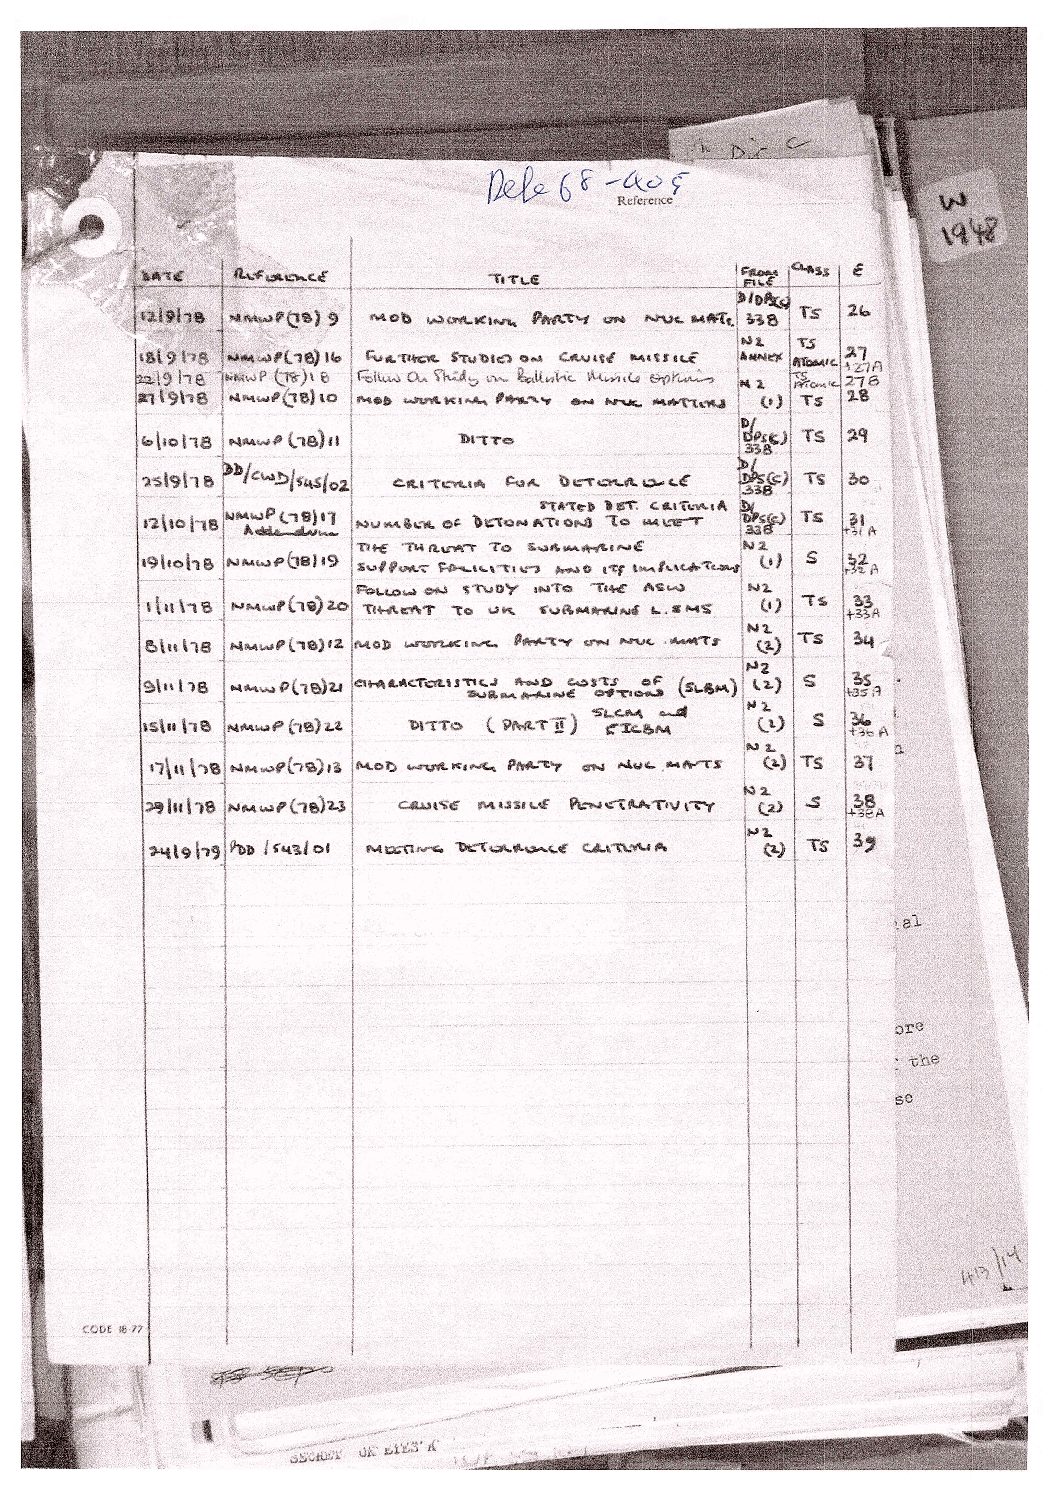 Defe 68-405
Reference
W
1948
DATE REFERENCE TITLE FROM FILE CLASS E
12/9/78 NMWP(78) 9 MOD WORKING PARTY ON NUC MATS. D/DPS(C) 338 TS 26
18/9/78 NMWP(78) 16 FURTHER STUDIES ON CRUISE MISSILE N2 ANNEX TS ATOMIC 27 +27A
22/9/78 NMWP (78) 18 Follow On Study on Ballistic Missile options TS Atomic 27B
27/9/78 NMWP(78) 10 MOD WORKING PARTY ON NUC MATTERS N2 (1) TS 28
6/10/78 NMWP(78) 11 DITTO D/DPS(C) 338 TS 29
25/9/78 DD/CWD/545/02 CRITERIA FOR DETERRENCE D/DPS(C) 338 TS 30
12/10/78 NMWP(78)17 Addendum NUMBER OF DETONATIONS TO MEET STATED DET. CRITERIA D/DPS(C) 338 TS 31 +31A
19/10/78 NMWP(78)19 THE THREAT TO SUBMARINE SUPPORT FACILITIES AND ITS IMPLICATIONS N2 (1) S 32 +32A
1/11/78 NMWP(78) 20 FOLLOW ON STUDY INTO THE ASW THREAT TO UK SUBMARINE L. SMS N2 (1) TS 33 +33A
8/11/78 NMWP(78)12 MOD WORKING PARTY ON NUC. MATS N2 (2) TS 34
9/11/78 NMWP(78)21 CHARACTERISTICS AND COSTS OF SUBMARINE OPTIONS (SLBM) N2 (2) S 35 +35A
15/11/78 NMWP(78)22 DITTO (PART II) SLCM and N2 (2) S 36 +36A
17/11/78 NMWP(78)13 MOD WORKING PARTY ON NUC. MATS N2 (2) TS 37
29/11/78 NMWP(78)23 CRUISE MISSILE PENETRATIVITY N2 (2) S 38 +38A
24/9/79 PDD /543/01 MEETING DETERRENCE CRITERIA N2 (2) TS 39
al
ore
the
se
413/14
CODE 18-77
SECRET UK EYES A